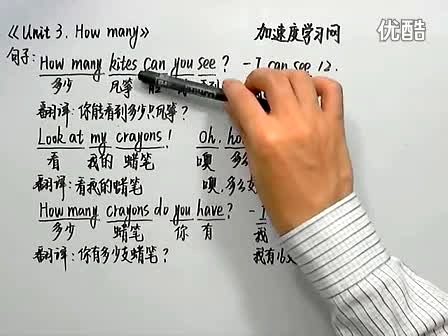 《Unit 3. How many》 加速度学习网 优酷
句子: How many kites can you see? - I can see 12.
多少 风筝 能
翻译: 你能看到多少只风筝?
Look at my crayons! Oh,
看 我的 蜡笔 噢 多么
翻译: 看我的蜡笔 噢,多么
How many crayons do you have? - I
多少 蜡笔 你 有 我
翻译: 你有多少支蜡笔? 我有16支